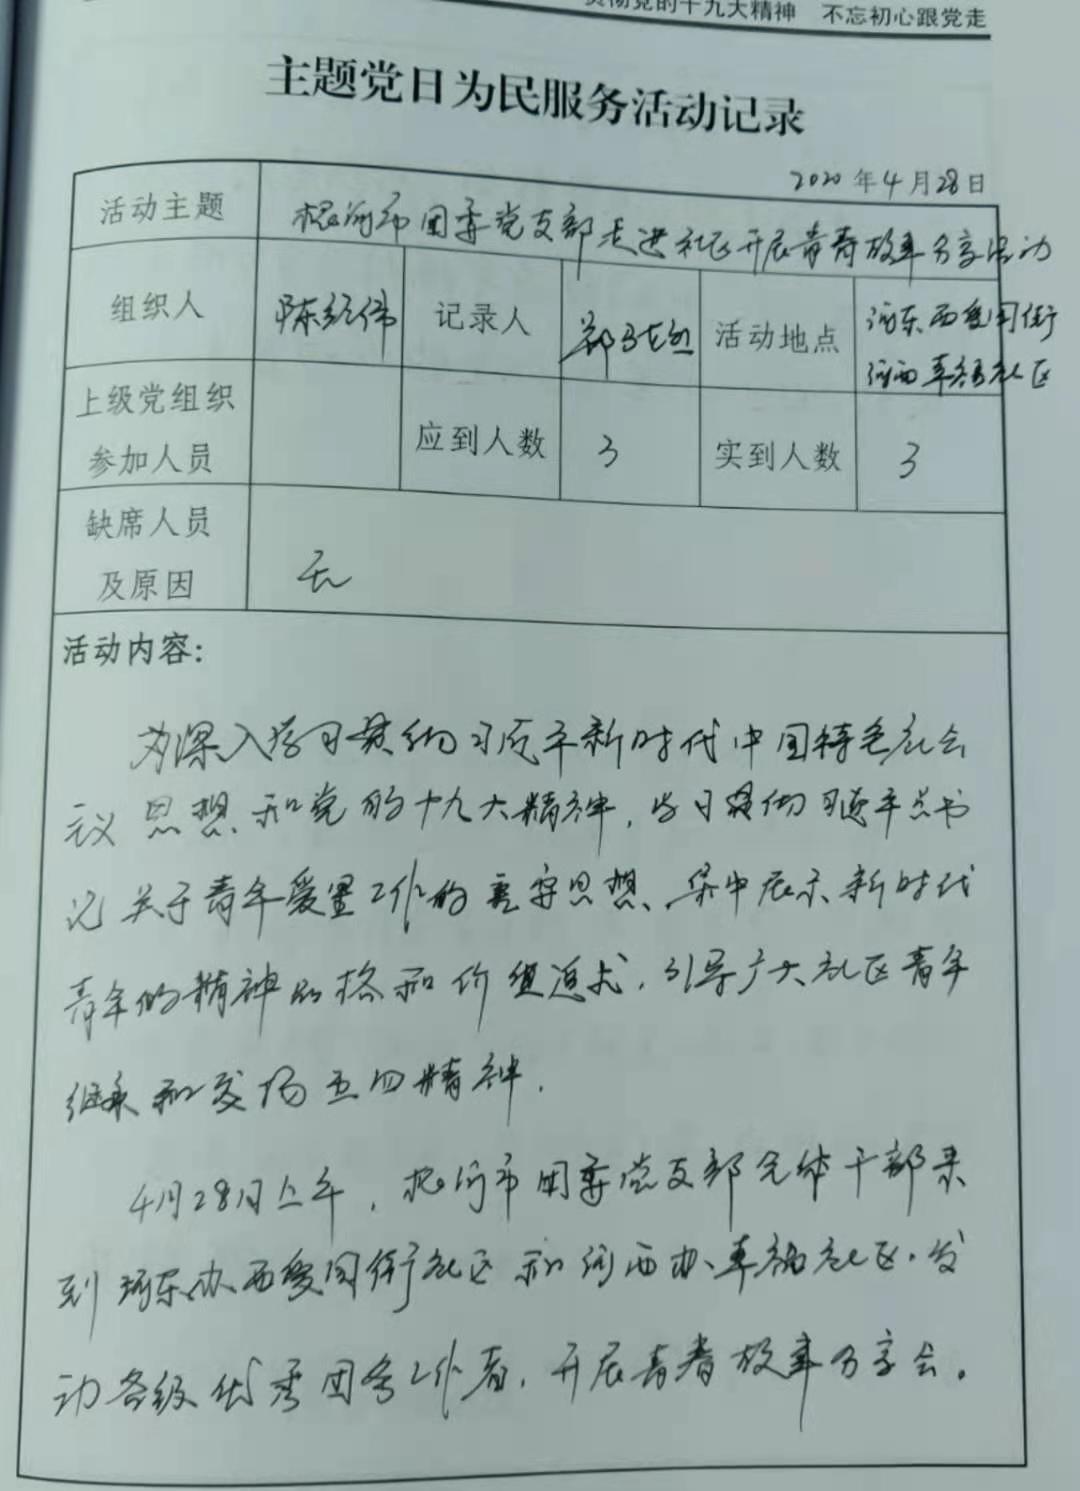 贯彻党的十九大精神 不忘初心跟党走
主题党日为民服务活动记录
2020年4月28日
活动主题 市团委党支部走进社区开展青春故事分享活动
组织人 陈经伟 记录人 郑 活动地点 河东西 街
河西车 社区
上级党组织
参加人员
应到人数 3 实到人数 3
缺席人员
及原因
无
活动内容:
为深入学习贯彻习近平新时代中国特色社会
主义思想和党的十九大精神,学习贯彻习近平总书
记关于青年 工作的重要思想、集中展示新时代
青年的精神品格和价值追求,引导广大社区青年
继承和发扬五四精神.
4月28日上午, 市团委党支部全体干部来
到河东办西 街社区和河西办车 社区.发
动各级优秀团务工作者,开展青春故事分享会。